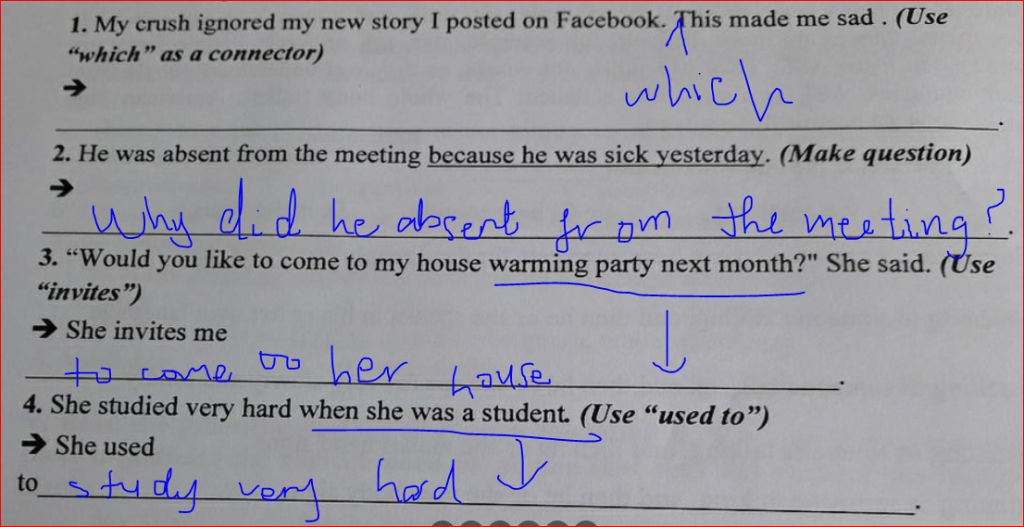 1. My crush ignored my new story I posted on Facebook. This made me sad . (Use
“which” as a connector)
➔
which
2. He was absent from the meeting because he was sick yesterday. (Make question)
➔
Why did he absent from the meeting?
3. “Would you like to come to my house warming party next month?" She said. (Use
“invites”)
➔ She invites me
to come to her house
4. She studied very hard when she was a student. (Use “used to”)
➔ She used
to study very hard